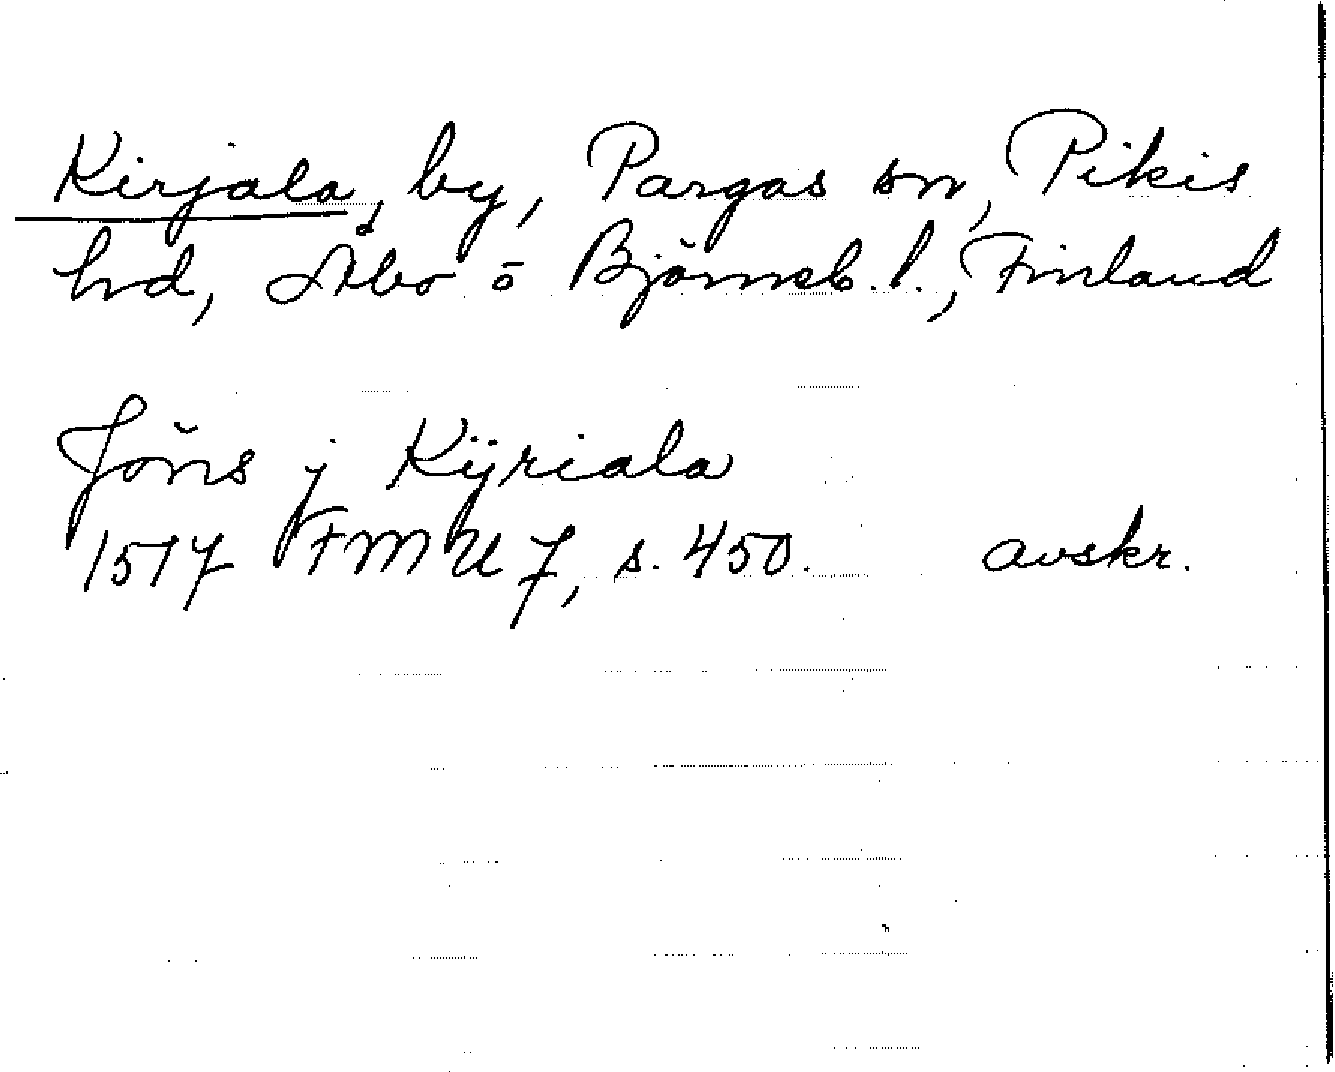 Kirjala, by, Pargas sn, Pikis
hd, Åbo o Björneb. l., Finland
Jöns j Kÿriala
1517 FMU 7, s. 450. avskr.